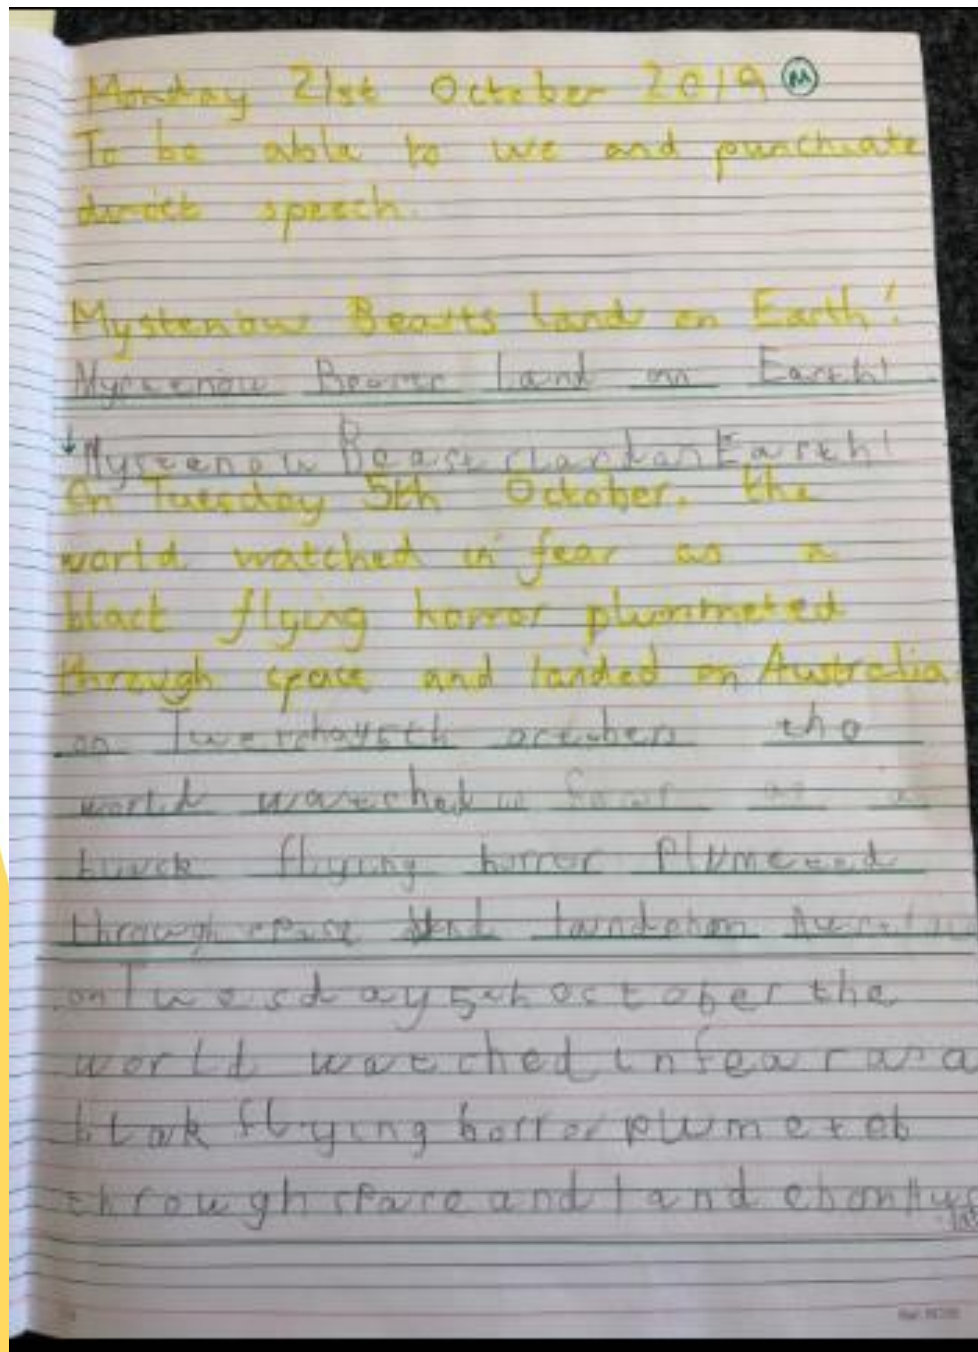 Monday 21st October 2019 M
To be able to use and punctuate
direct speech.
Mysterious Beasts land on Earth!
Mysterious Beasts Land on Earth!
Mysterious Beasts land on Earth!
On Tuesday 5th October, the
world watched in fear as a
black flying horror plummeted
through space and landed on Australia
on the
world watched in fear as a
flying horror Plumeted
through space and
on Twesday 5th october the
world watched in fear as a
blak flying horror plumeted
through space and